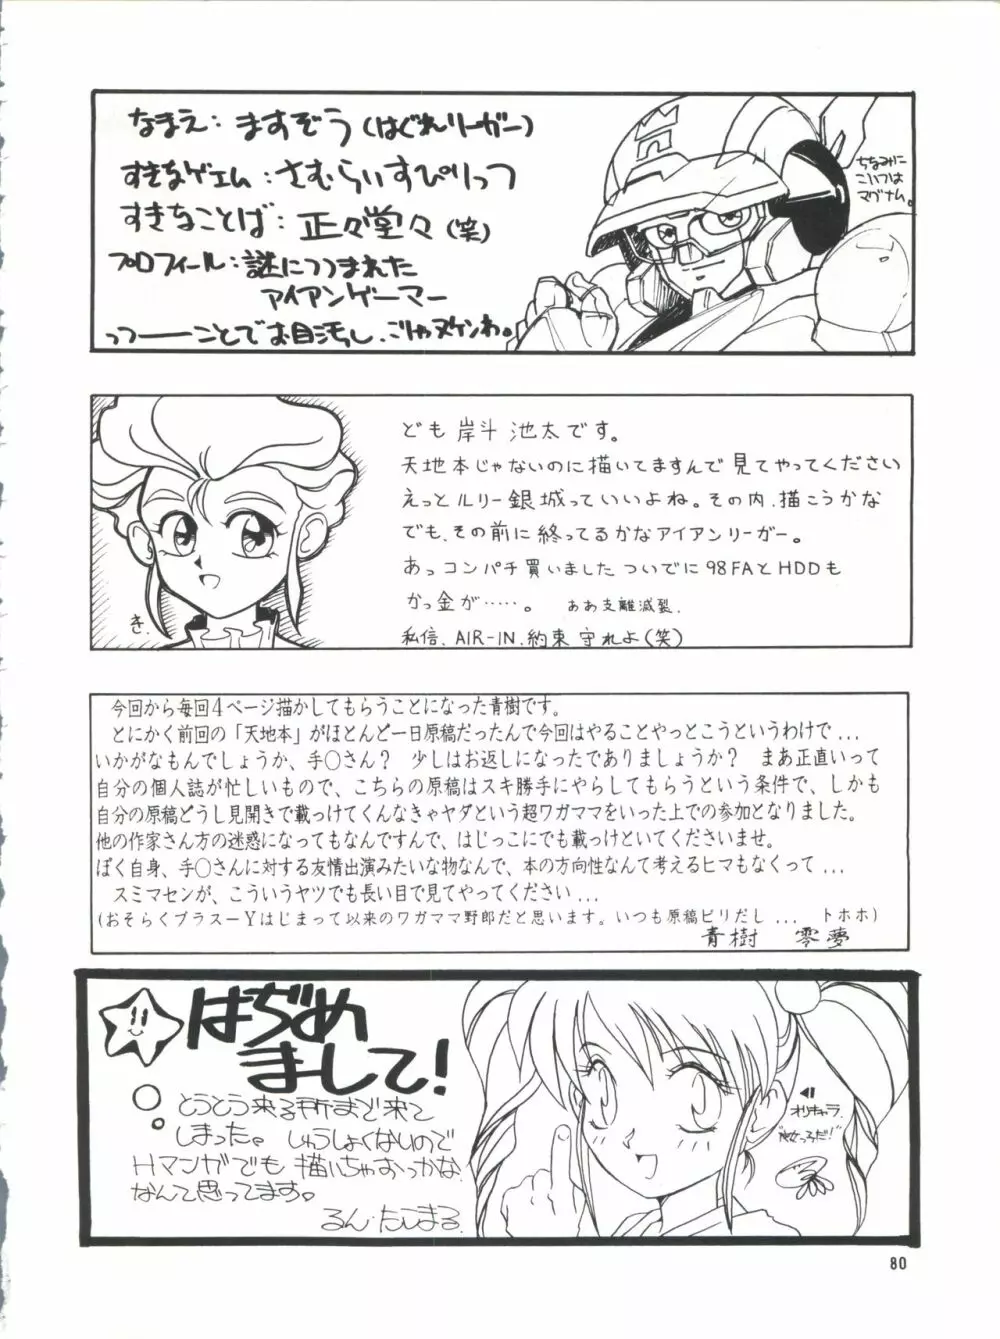 なまえ：ますぞう（はぐれリーガー）
すきなゲエム：さむらいすぴりっつ
すきなことば：正々堂々（笑）
プロフィール：謎につつまれた
アイアンゲーマー
っつーーことでお目汚し、こりゃヌケンわ。
ちなみに
こいつは
マグナム。
ども 岸斗 池太です。
天地本じゃないのに描いてますんで見てやってください
えっとルリー銀城っていいよね。その内、描こうかな
でも、その前に終ってるかなアイアンリーガー。
あっコンパチ買いました ついでに98FAとHDDも
かっ金が……。 ああ支離滅裂.
私信、AIR-IN.約束守れよ(笑)
き.
今回から毎回4ページ描かしてもらうことになった青樹です。
とにかく前回の「天地本」がほとんど一日原稿だったんで今回はやることやっとこうというわけで...
いかがなもんでしょうか、手〇さん? 少しはお返しになったでありましょうか? まあ正直いって
自分の個人誌が忙しいもので、こちらの原稿はスキ勝手にやらしてもらうという条件で、しかも
自分の原稿どうし見開きで載っけてくんなきゃヤダという超ワガママをいった上での参加となりました。
他の作家さん方の迷惑になってもなんですんで、はじっこにでも載っけといてくださいませ。
ぼく自身、手〇さんに対する友情出演みたいな物なんで、本の方向性なんて考えるヒマもなくって...
スミマセンが、こういうヤツでも長い目で見てやってください...
(おそらくプラスーYはじまって以来のワガママ野郎だと思います。いつも原稿ビリだし ... トホホ)
青樹 零夢
はぢめ
まして!
とうとう来る所まで来て
しまった。しゅうしょくないので
Hマンガでも描いちゃおっかな
なんて思ってます。
るん・たしまる
オリキャラ.
80